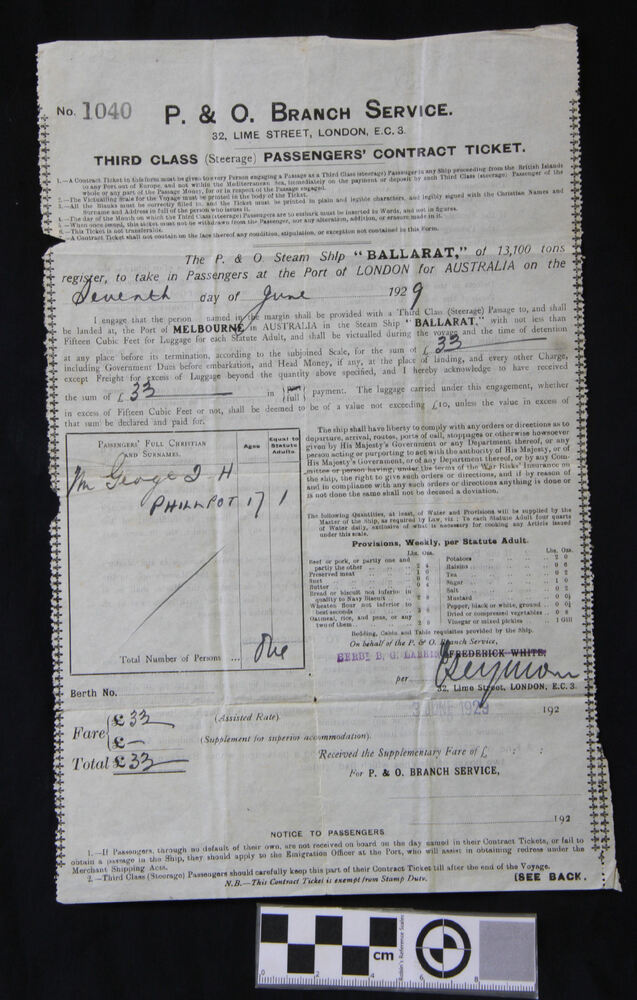 No. 1040
P. & O. BRANCH SERVICE.
32, LIME STREET, LONDON, E.C. 3.
THIRD CLASS (Steerage) PASSENGERS' CONTRACT TICKET.
1.—A Contract Ticket in this form must be given to every Person engaging a Passage as a Third Class (steerage) Passenger in any Ship proceeding from the British Islands
to any Port out of Europe, and not within the Mediterranean Sea, immediately on the payment or deposit by such Third Class (steerage) Passenger of the
whole or any part of the Passage Money, for or in respect of the Passage engaged.
2.—The Victualling Scale for the Voyage must be printed in the body of the Ticket.
3.—All the Blanks must be correctly filled in, and the Ticket must be printed in plain and legible characters, and legibly signed with the Christian Names and
Surname and Address in full of the person who issues it.
4.—The day of the Month on which the Third Class (steerage) Passengers are to embark must be inserted in Words, and not in figures.
5.—When once issued, this ticket must not be withdrawn from the Passenger, nor any alteration, addition, or erasure made in it.
6.—This Ticket is not transferable.
A Contract Ticket shall not contain on the face thereof any condition, stipulation, or exception not contained in this Form.
The P. & O. Steam Ship "BALLARAT," of 13,100 tons
register, to take in Passengers at the Port of LONDON for AUSTRALIA on the
Seventh day of June 1929
I engage that the person named in the margin shall be provided with a Third Class (Steerage) Passage to, and shall
be landed at, the Port of MELBOURNE in AUSTRALIA in the Steam Ship "BALLARAT," with not less than
Fifteen Cubic Feet for Luggage for each Statute Adult, and shall be victualled during the voyage and the time of detention
at any place before its termination, according to the subjoined Scale, for the sum of £ 33
including Government Dues before embarkation, and Head Money, if any, at the place of landing, and every other Charge,
except Freight for excess of Luggage beyond the quantity above specified, and I hereby acknowledge to have received
the sum of £ 33 in full payment. The luggage carried under this engagement, whether
in excess of Fifteen Cubic Feet or not, shall be deemed to be of a value not exceeding £10, unless the value in excess of
that sum be declared and paid for.
PASSENGERS' FULL CHRISTIAN AND SURNAMES.
Ages
Equal to Statute Adults
Mr George J H
PHILLPOT 17 1
Total Number of Persons ... One
Berth No.
The ship shall have liberty to comply with any orders or directions as to
departure, arrival, routes, ports of call, stoppages or otherwise howsoever
given by His Majesty's Government or any Department thereof, or any
person acting or purporting to act with the authority of His Majesty, or of
His Majesty's Government, or of any Department thereof, or by any Com-
mittee or person having, under the terms of the War Risks' Insurance on
the ship, the right to give such orders or directions, and if by reason of
and in compliance with any such orders or directions anything is done or
is not done the same shall not be deemed a deviation.
The following Quantities, at least, of Water and Provisions will be supplied by the
Master of the Ship, as required by Law, viz : To each Statute Adult four quarts
of Water daily, exclusive of what is necessary for cooking any Article issued
under this scale.
Provisions, Weekly, per Statute Adult.
Lbs. Ozs.
Beef or pork, or partly one and
partly the other 2 4
Preserved meat 1 0
Suet 0 6
Butter 0 4
Bread or biscuit not inferior in
quality to Navy Biscuit
Wheaten flour not inferior to
best seconds
Oatmeal, rice, and peas, or any
two of them
Lbs. Ozs.
Potatoes 2 0
Raisins 0 6
Tea 0 2
Sugar 1 0
Salt 0 2
Mustard 0 0½
Pepper, black or white, ground 0 0¼
Dried or compressed vegetables 0 8
Vinegar or mixed pickles 1 Gill
Bedding, Cabin and Table requisites provided by the Ship.
On behalf of the P. & O. Branch Service,
FREDERICK WHITE,
per
32, Lime Street, LONDON, E.C. 3.
3 JUNE 1929 192
Fare £ 33 (Assisted Rate).
£ — (Supplement for superior accommodation).
Total £ 33
Received the Supplementary Fare of £ : :
For P. & O. BRANCH SERVICE,
192
NOTICE TO PASSENGERS
1.—If Passengers, through no default of their own, are not received on board on the day named in their Contract Tickets, or fail to
obtain a passage in the Ship, they should apply to the Emigration Officer at the Port, who will assist in obtaining redress under the
Merchant Shipping Acts.
2.—Third Class (Steerage) Passengers should carefully keep this part of their Contract Ticket till after the end of the Voyage.
N.B.—This Contract Ticket is exempt from Stamp Duty.
[SEE BACK.
cm
0 2 4 6 8